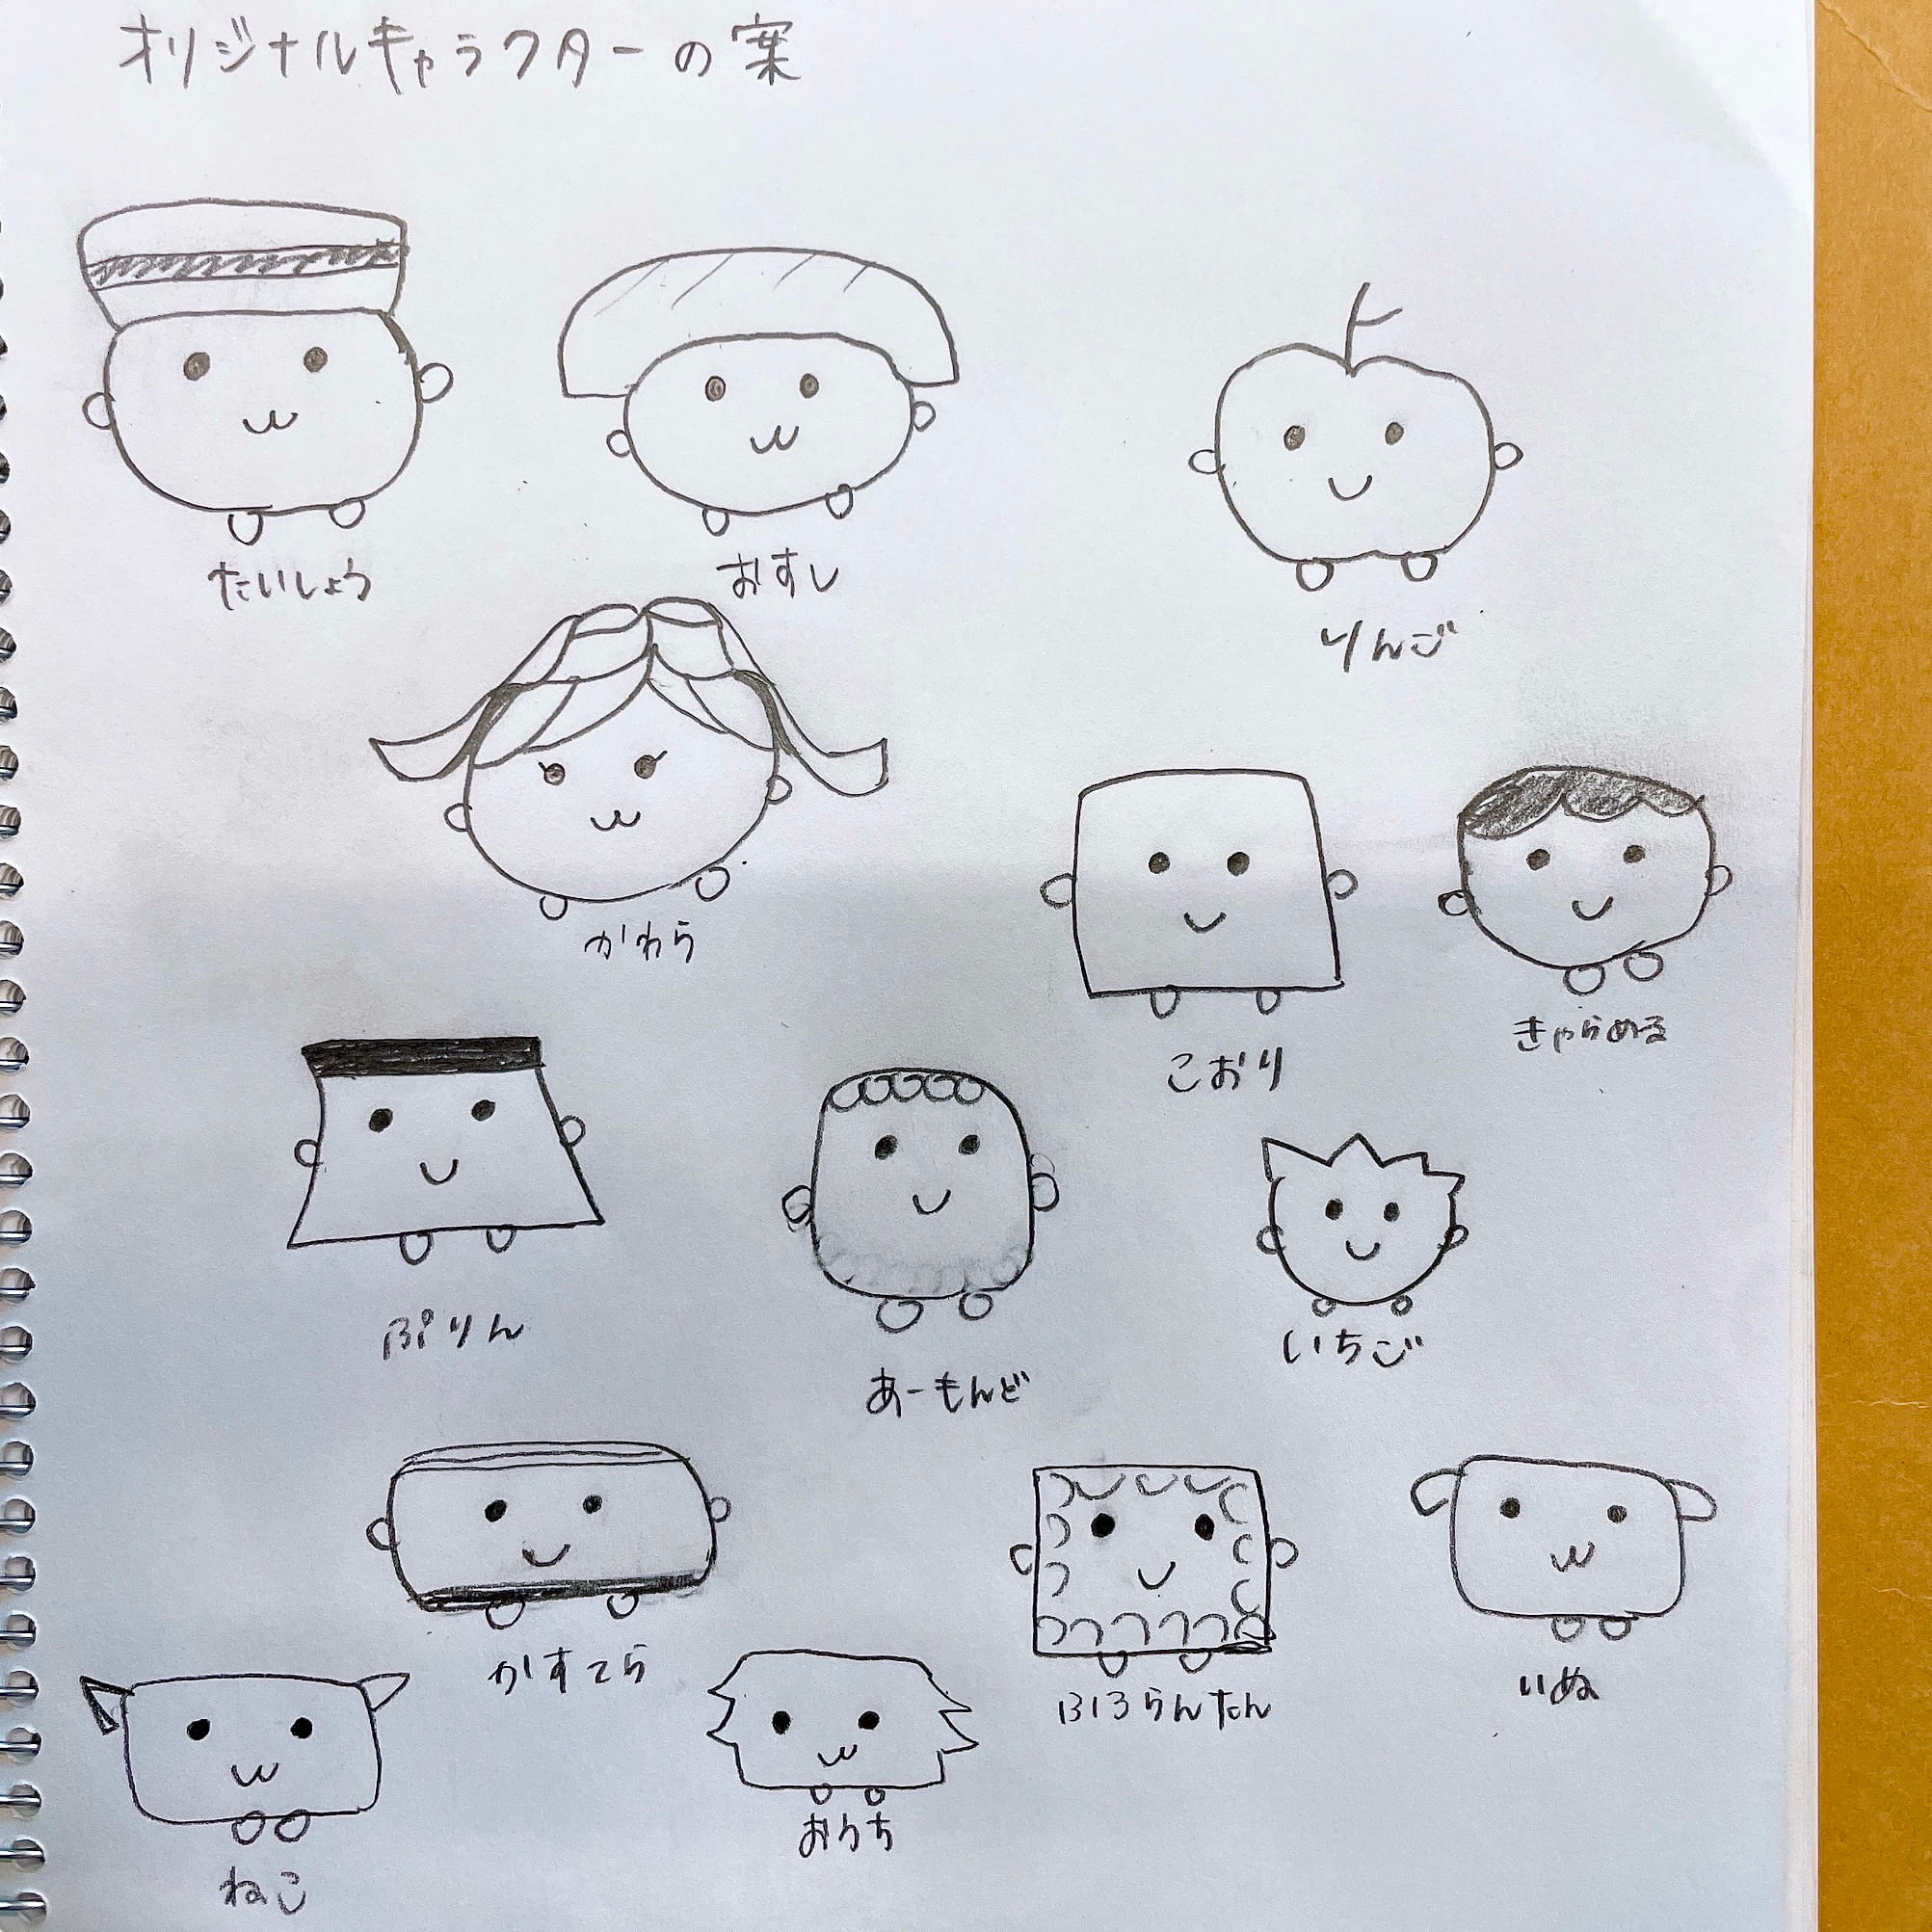 オリジナルキャラクターの案
たいしょう
おすし
りんご
かわら
こおり
きゃらめる
ぷりん
あーもんど
いちご
かすてら
ふろらんたん
いぬ
ねこ
おうち